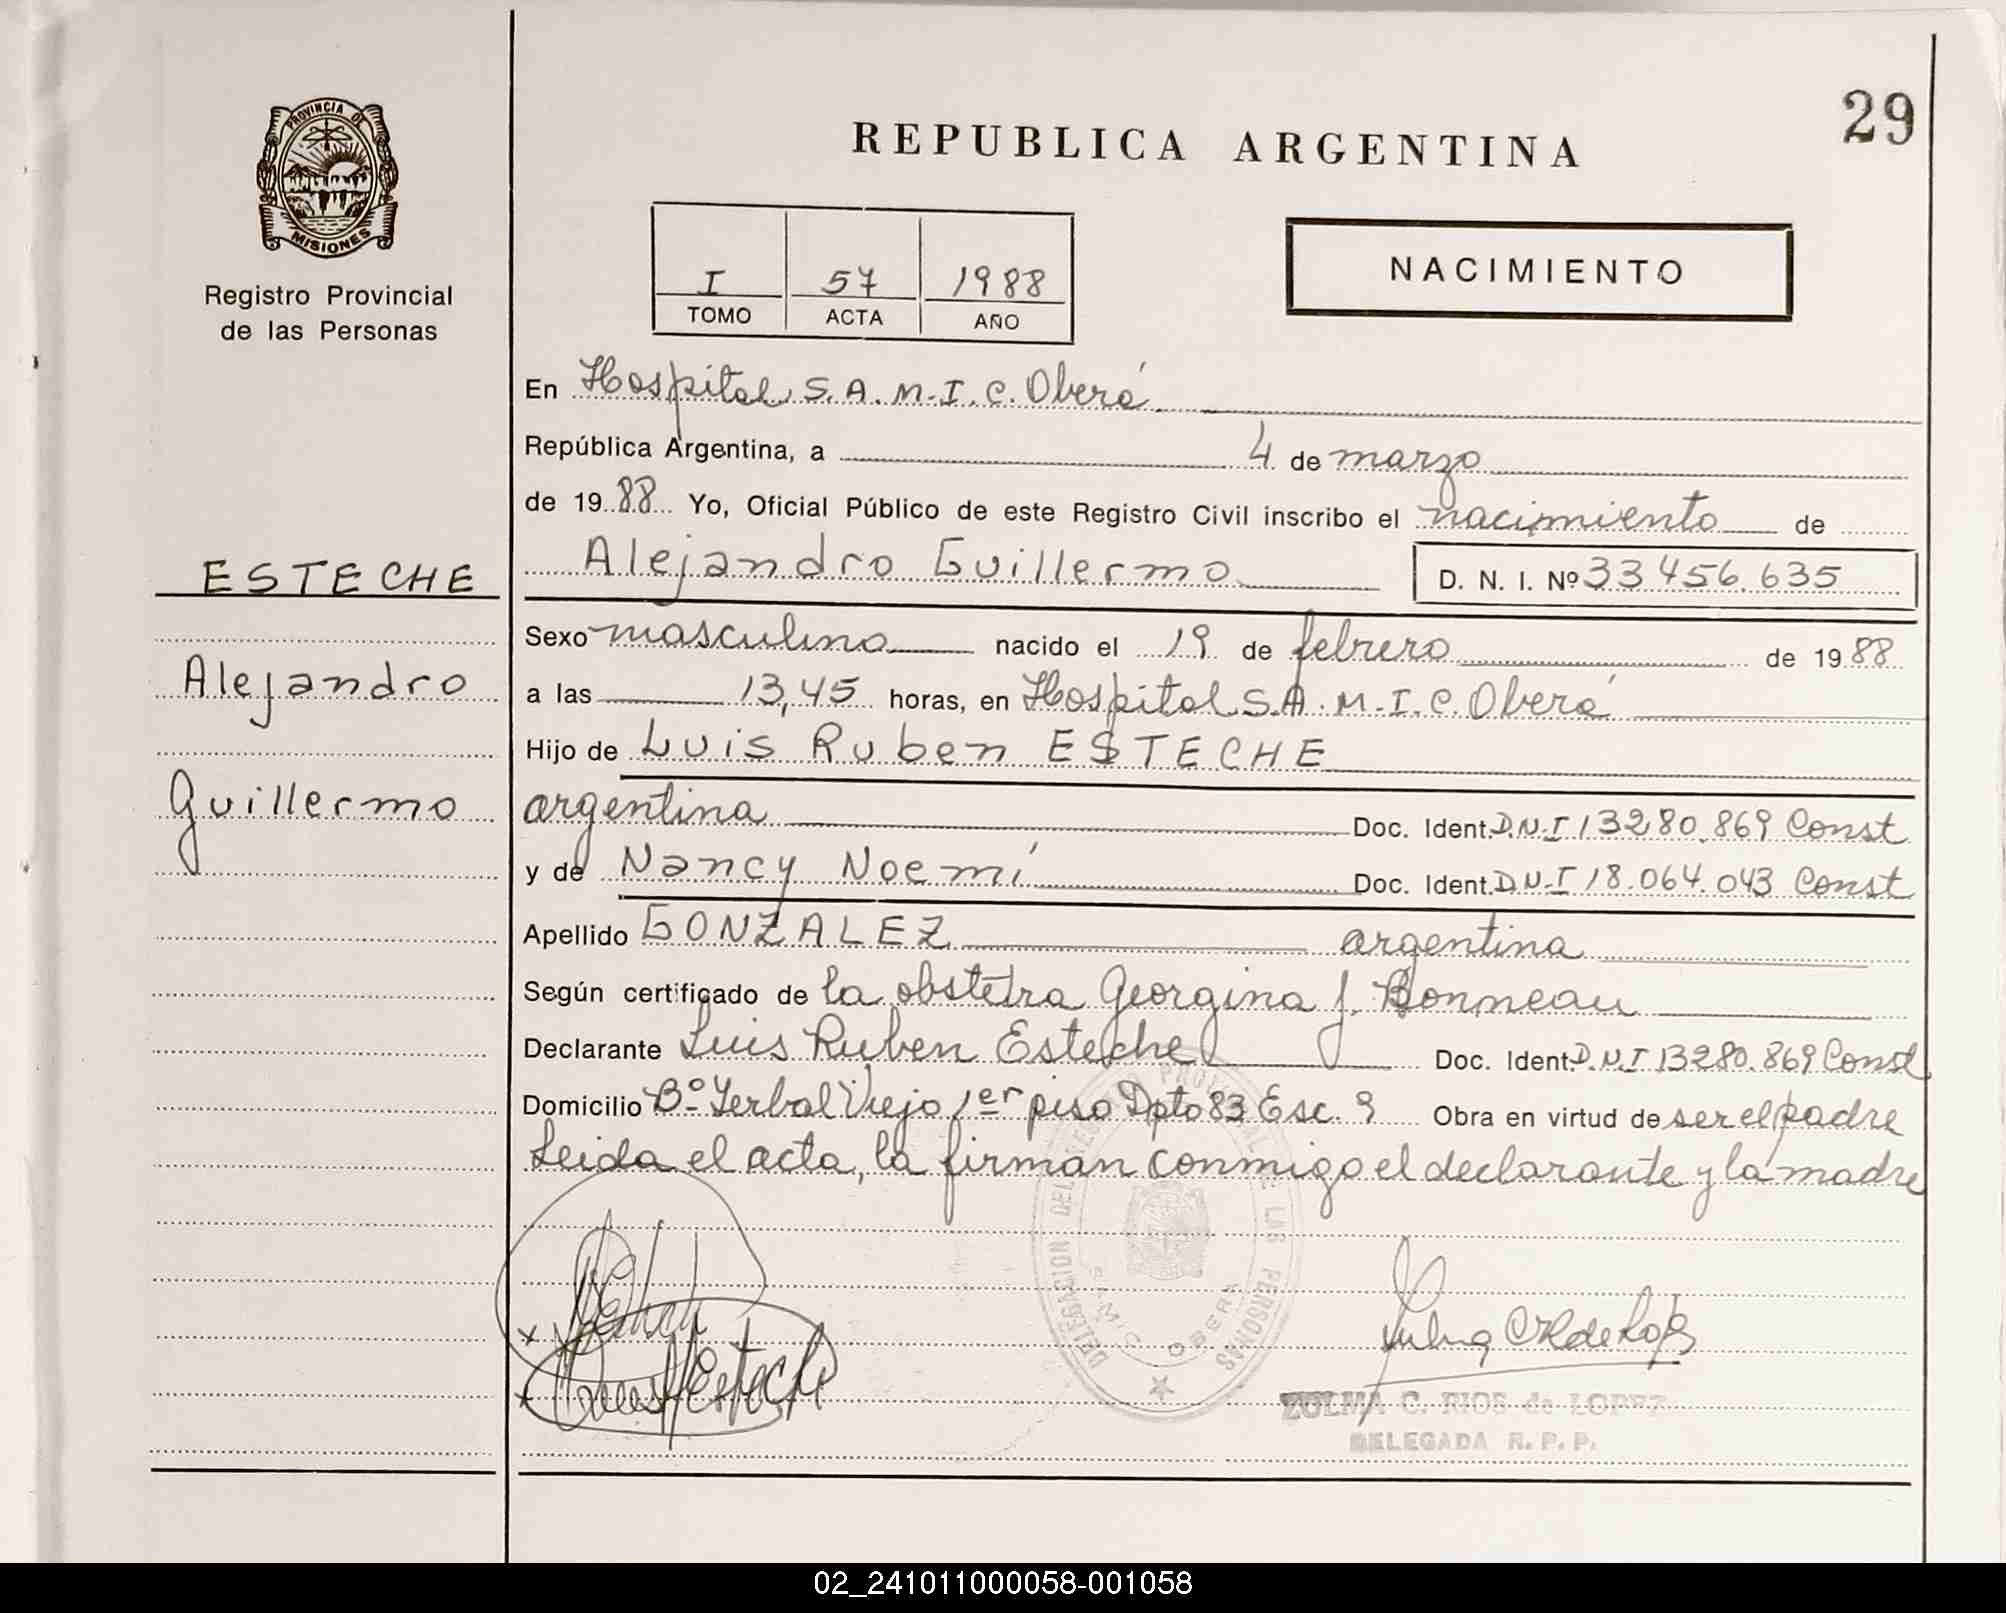 PROVINCIA DE
MISIONES
Registro Provincial
de las Personas
ESTECHE
Alejandro
Guillermo
29
REPUBLICA ARGENTINA
I 57 1988
TOMO ACTA AÑO
NACIMIENTO
En Hospital S.A.M.I.C. Oberá
República Argentina, a 4 de marzo
de 1988 Yo, Oficial Público de este Registro Civil inscribo el nacimiento de
Alejandro Guillermo D. N. I. Nº 33456.635
Sexo masculino nacido el 19 de febrero de 1988
a las 13,45 horas, en Hospital S.A.M.I.C. Oberá
Hijo de Luis Ruben ESTECHE
argentina Doc. Ident. D.N.I 13280.869 Const
y de Nancy Noemí Doc. Ident. D.N.I 18.064.043 Const
Apellido GONZALEZ argentina
Según certificado de la obstetra Georgina J. Bonneau
Declarante Luis Ruben Esteche Doc. Ident. D.N.I 13280.869 Const
Domicilio Bº Yerbal Viejo 1er piso Dpto 83 Esc. 9 Obra en virtud de ser el padre
Leida el acta, la firman conmigo el declarante y la madre
DELEGACION DEL REGISTRO PROVINCIAL DE LAS PERSONAS
S.A.M.I.C. OBERA
ZULMA C. RIOS de LOPEZ
DELEGADA R. P. P.
02_241011000058-001058